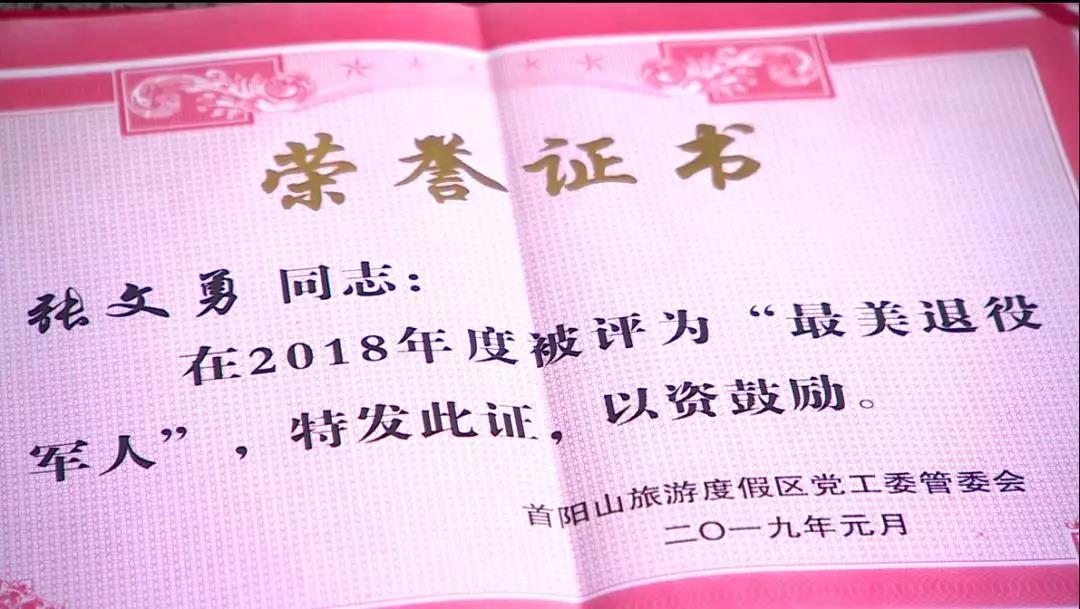 荣誉证书
张文勇 同志：
在2018年度被评为“最美退役
军人”，特发此证，以资鼓励。
首阳山旅游度假区党工委管委会
二〇一九年元月